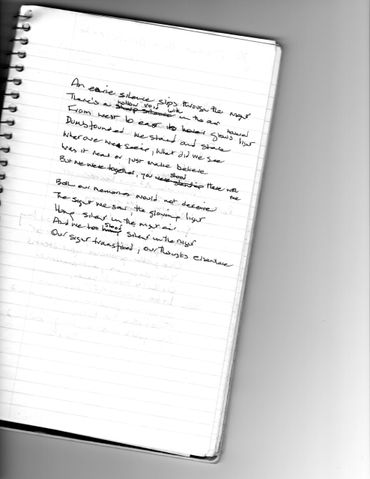 An eerie silence slips through the night
There's a hollow void in the air
From west to east glows light
Dumbfounded we stand and stare
What ever we seein, what did we see
Was it real or just make believe
But we were together, you stood there with me
Both our memories would not deceive
The sight we saw, the glowing light
Hung silent in the night air
And we too stood silent in the night
Our sight transfixed, our thoughts elsewhere